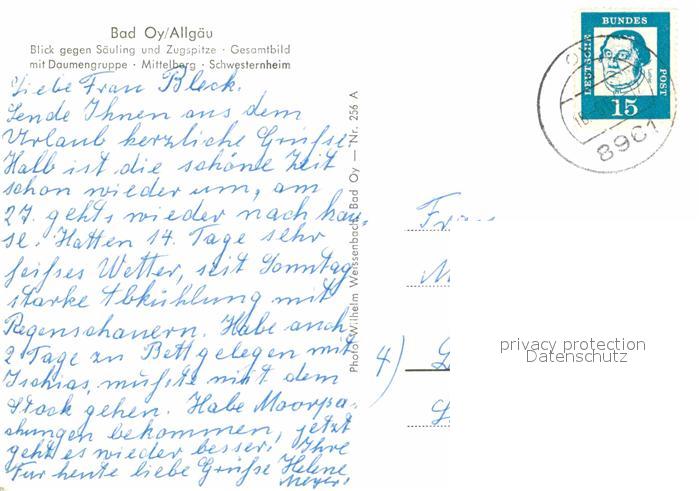 Bad Oy/Allgäu
Blick gegen Säuling und Zugspitze · Gesamtbild
mit Daumengruppe · Mittelberg · Schwesternheim
Liebe Frau Bleck,
Sende Ihnen aus dem
Urlaub herzliche Grüße.
Halb ist die schöne Zeit
schon wieder um, am
27. geht's wieder nach hau-
se. Hatten 14. Tage sehr
heißes Wetter, seit Sonntag
starke Abkühlung mit
Regenschauern. Habe auch
2 Tage zu Bett gelegen mit
Ischias, mußte mit dem
Stock gehen. Habe Moorpa-
ckungen bekommen, jetzt
geht es wieder besser. Ihre
Für heute liebe Grüße Helene
Meyer.
Photo Wilhelm Weissenbach, Bad Oy — Nr. 256 A
DEUTSCHE BUNDES POST
15
8961
Frau
4)
privacy protection
Datenschutz